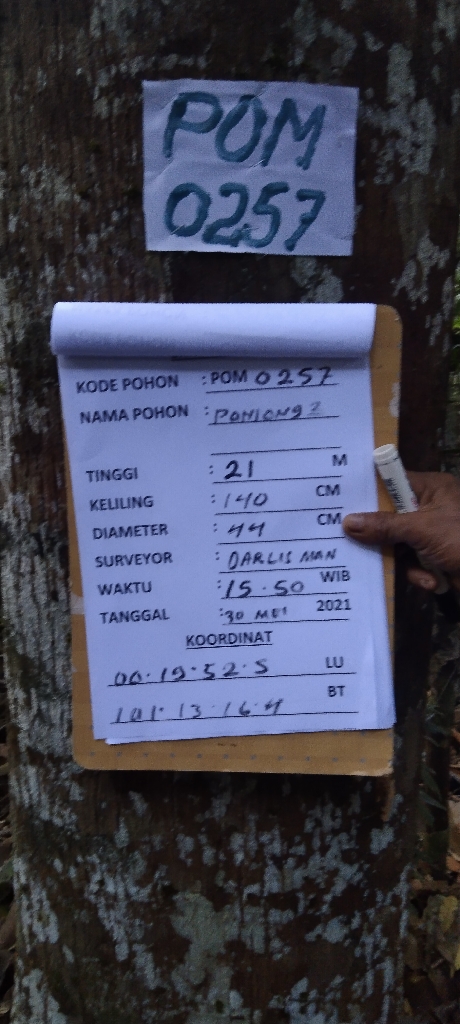 POM
0257
KODE POHON : POM 0257
NAMA POHON :
TINGGI : 21 M
KELILING : 140 CM
DIAMETER : 44 CM
SURVEYOR : DARLIS MAN
WAKTU : 15.50 WIB
TANGGAL : 30 MEI 2021
KOORDINAT
00.19.52.5 LU
101.13.16.4 BT